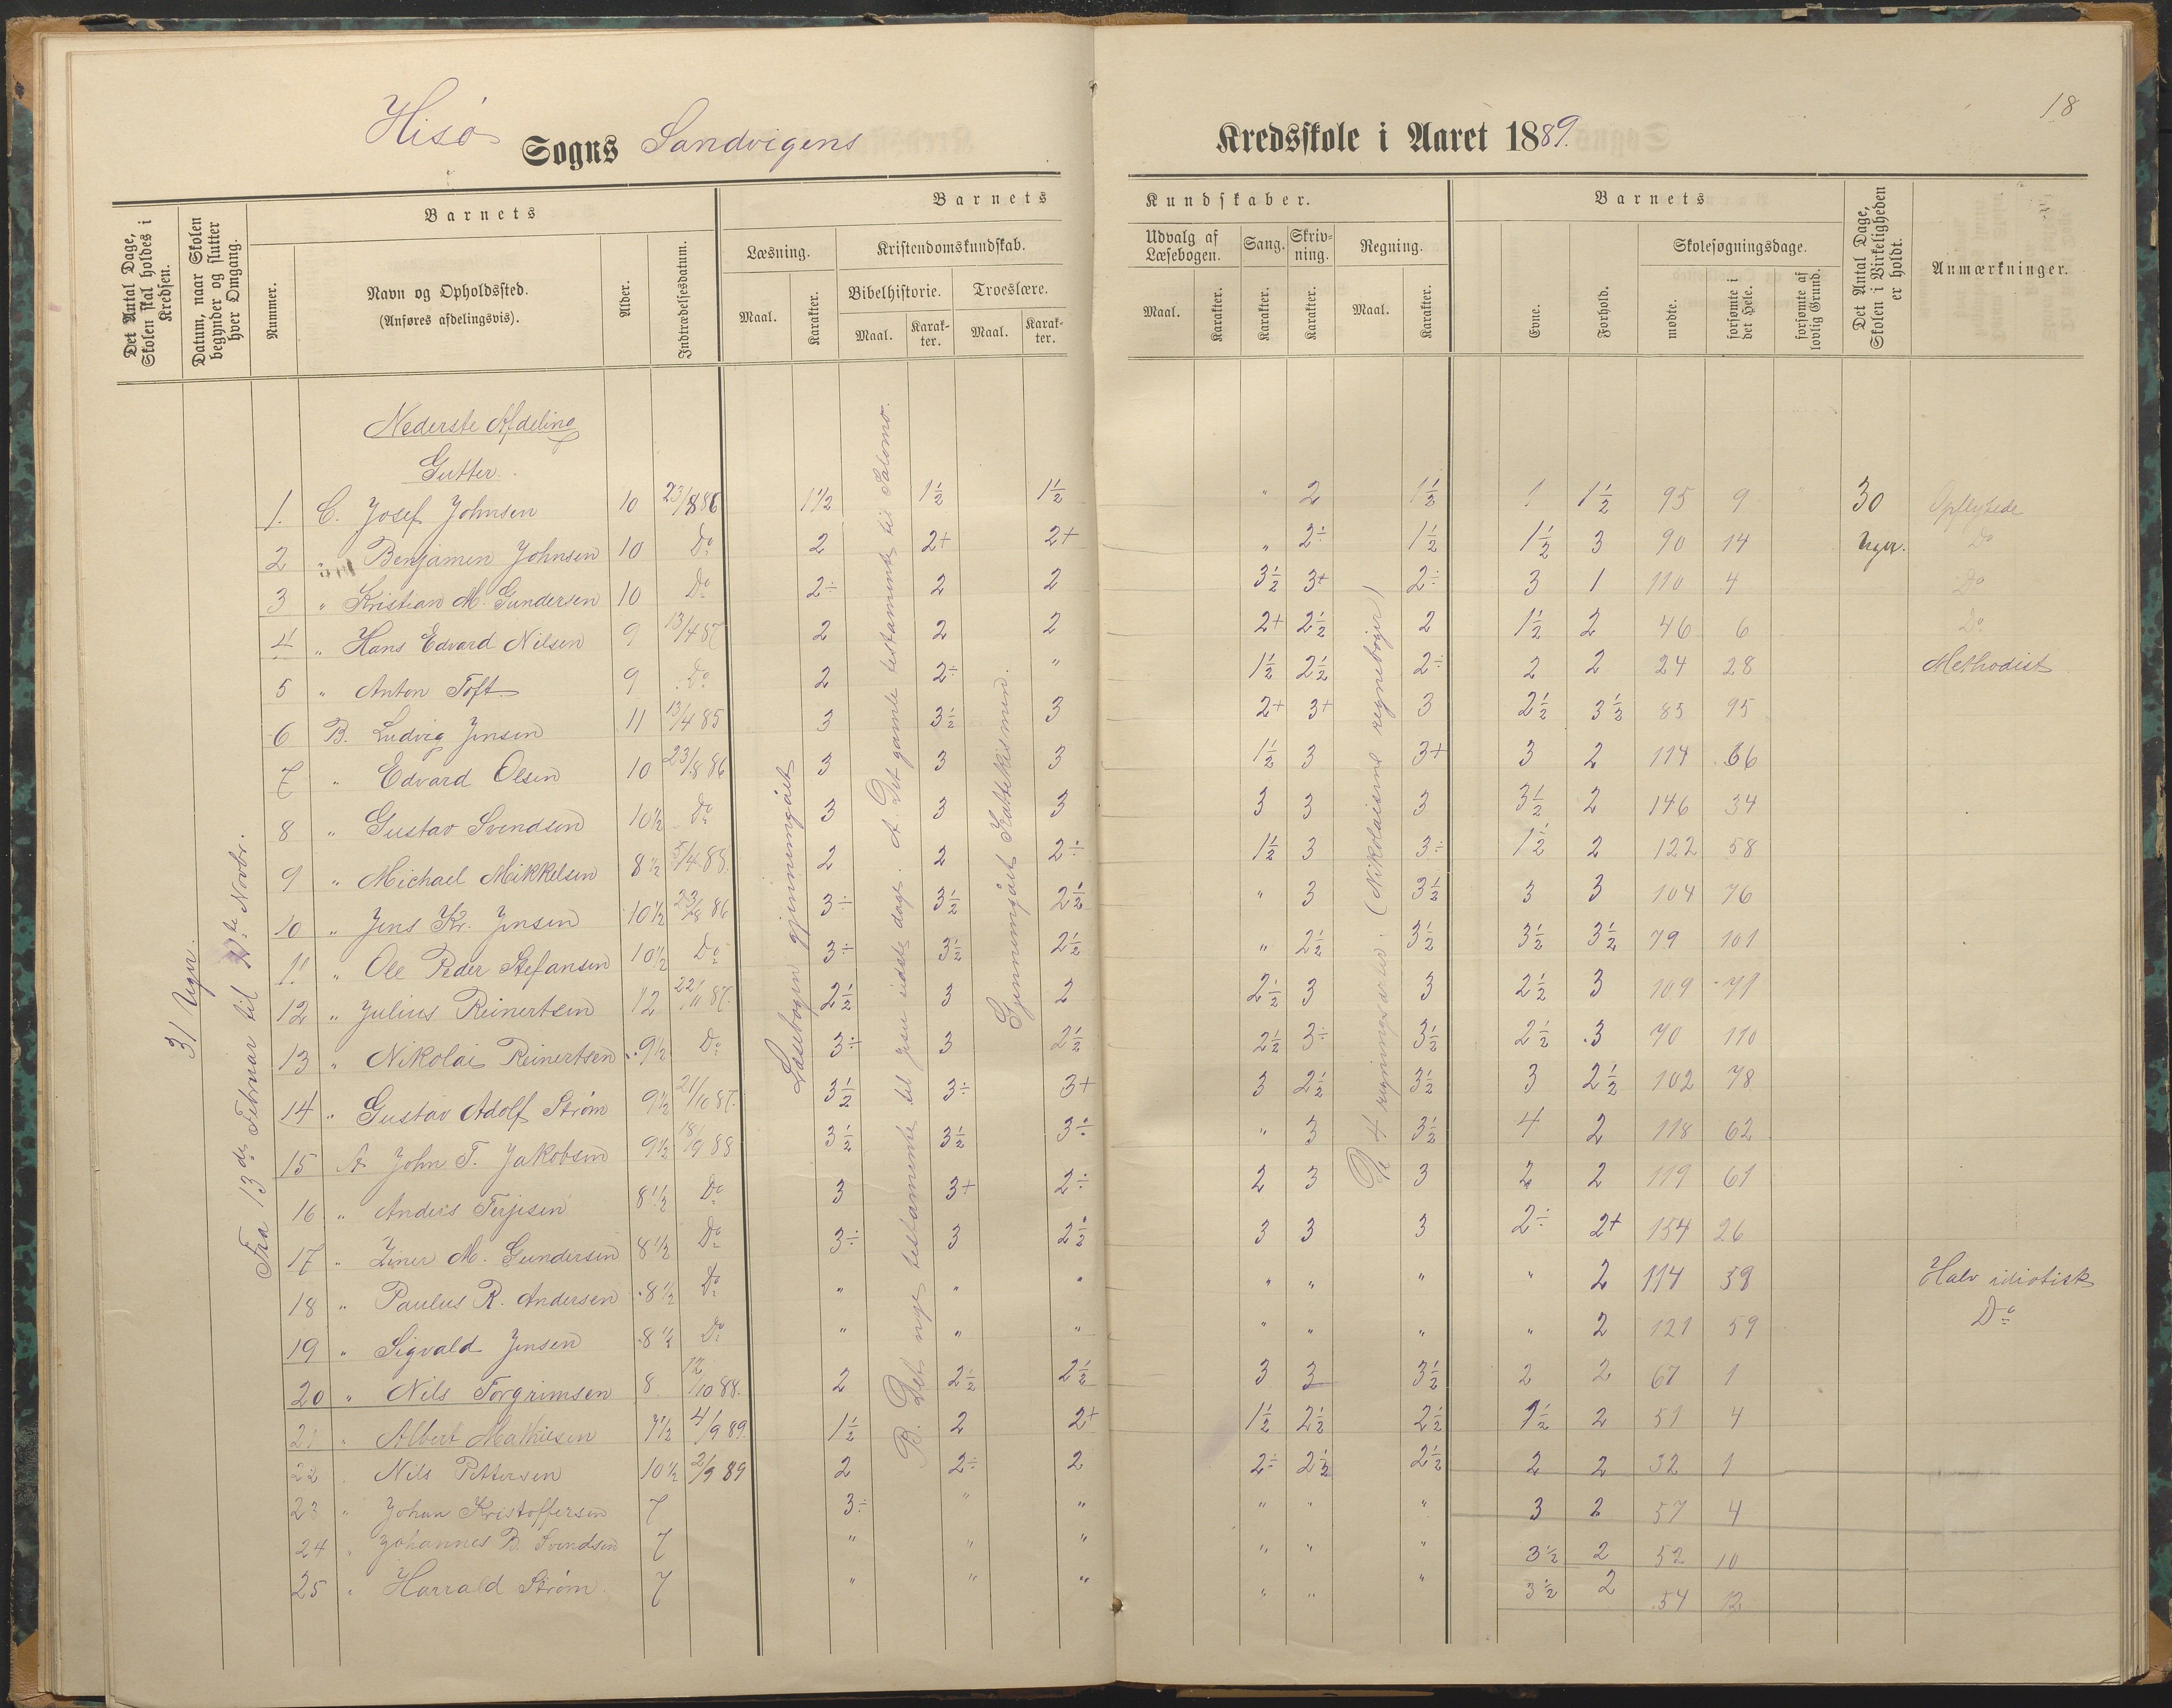 18
Hisø Sogns Sandvigens Kredsskole i Aaret 1889.
Det Antal Dage, Skolen skal holdes i Kredsen.
Datum, naar Skolen begynder og slutter hver Omgang.
Barnets
Nummer.
Navn og Opholdssted.
(Anføres afdelingsvis).
Alder.
Indtrædelsesdatum.
Barnets Kundskaber.
Læsning.
Maal. Karakter.
Kristendomskundskab.
Bibelhistorie. Troeslære.
Maal. Karakter. Maal. Karakter.
Udvalg af Læsebogen.
Maal. Karakter.
Sang. Karakter.
Skrivning. Karakter.
Regning.
Maal. Karakter.
Barnets
Evne. Forhold.
Skolesøgningsdage.
mødte. forsømte i det Hele. forsømte af lovlig Grund.
Det Antal Dage, Skolen i Virkeligheden er holdt.
Anmærkninger.
31 Uger.
Fra 13de Februar til te Novbr.
Læsebogen gjennemgået
B. Det nye testamente til Jesu sidste dage. A. Det gamle testamente til Salomo.
Gjennemgået Katekismen.
De 4 regningsarter. (Nikolaisens regnebøger)
Nederste Afdeling
Gutter.
1. C. Josef Johnsen 10 23/8 86 1 1/2 1 1/2 1 1/2 " 2 1 1/2 1 1 1/2 95 9 " 30 Opflyttede
2 " Benjamin Johnsen 10 Do 2 2+ 2+ " 2÷ 1 1/2 1 1/2 3 90 14 Uger. Do
3 " Kristian M. Gundersen 10 Do 2÷ 2 2 3 1/2 3+ 2÷ 3 1 110 4 Do
4 " Hans Edvard Nilsen 9 13/4 87 2 2 2 2+ 2 1/2 2 1 1/2 2 46 6 Do
5 " Anton Toft 9 Do 2 2÷ " 1 1/2 2 1/2 2÷ 2 2 24 28 Methodist
6 B. Ludvig Jensen 11 13/4 85 3 3 1/2 3 2+ 3+ 3 2 1/2 3 1/2 85 95
7 " Edvard Olsen 10 23/8 86 3 3 3 1 1/2 3 3+ 3 2 114 66
8 " Gustav Svendsen 10 1/2 Do 3 3 3 3 3 3 3 1/2 2 146 34
9 " Michael Mikkelsen 8 1/2 5/4 88 2 2 2÷ 1 1/2 3 3÷ 1 1/2 2 122 58
10 " Jens Kr. Jensen 10 1/2 23/8 86 3÷ 3 1/2 2 1/2 " 3 3 1/2 3 3 104 76
11 " Ole Peder Stefansen 10 1/2 Do 3÷ 3 1/2 2 1/2 " 2 1/2 3 1/2 3 1/2 3 1/2 79 101
12 " Julius Reinertsen 12 22/11 87. 2 1/2 3 2 2 1/2 3 3 2 1/2 3 109 71
13 " Nikolai Reinertsen 9 1/2 Do 3÷ 3 2 1/2 2 1/2 3÷ 3 1/2 2 1/2 3 70 110
14 " Gustav Adolf Strøm 9 1/2 21/10 87. 3 1/2 3÷ 3+ 3 2 1/2 3 1/2 3 2 1/2 102 78
15 A John T. Jakobsen 9 1/2 18/9 88 3 1/2 3 1/2 3÷ " 3 3 1/2 4 2 118 62
16 " Anders Terjesen 8 1/2 Do 3 3+ 2÷ 2 3 3 2 2 119 61
17 " Einer M. Gundersen 8 1/2 Do 3÷ 3 2 1/2 3 3 3 2÷ 2+ 154 26
18 " Paulus R. Andersen 8 1/2 Do " " " " " " " 2 114 39 Halv idiotisk
19 " Sigvald Jensen 8 1/2 Do " " " " " " " 2 121 59 Do
20 " Nils Torgrimsen 8 12/10 88. 2 2 1/2 2 1/2 3 3 3 1/2 2 2 67 1
21 " Albert Mathiesen 7 1/2 4/9 89. 1 1/2 2 2+ 1 1/2 2 1/2 2 1/2 1 1/2 2 51 4
22 Nils Pettersen 10 1/2 2/9 89 2 2÷ 2 2÷ 2 1/2 2 1/2 2 2 32 1
23 " Johan Kristoffersen 7 3÷ " " " " " 3 2 57 4
24 " Johannes B. Svendsen 7 " " " " " " 3 1/2 2 52 10
25 " Harrald Strøm. 7 " " " " " " 3 1/2 2 54 12